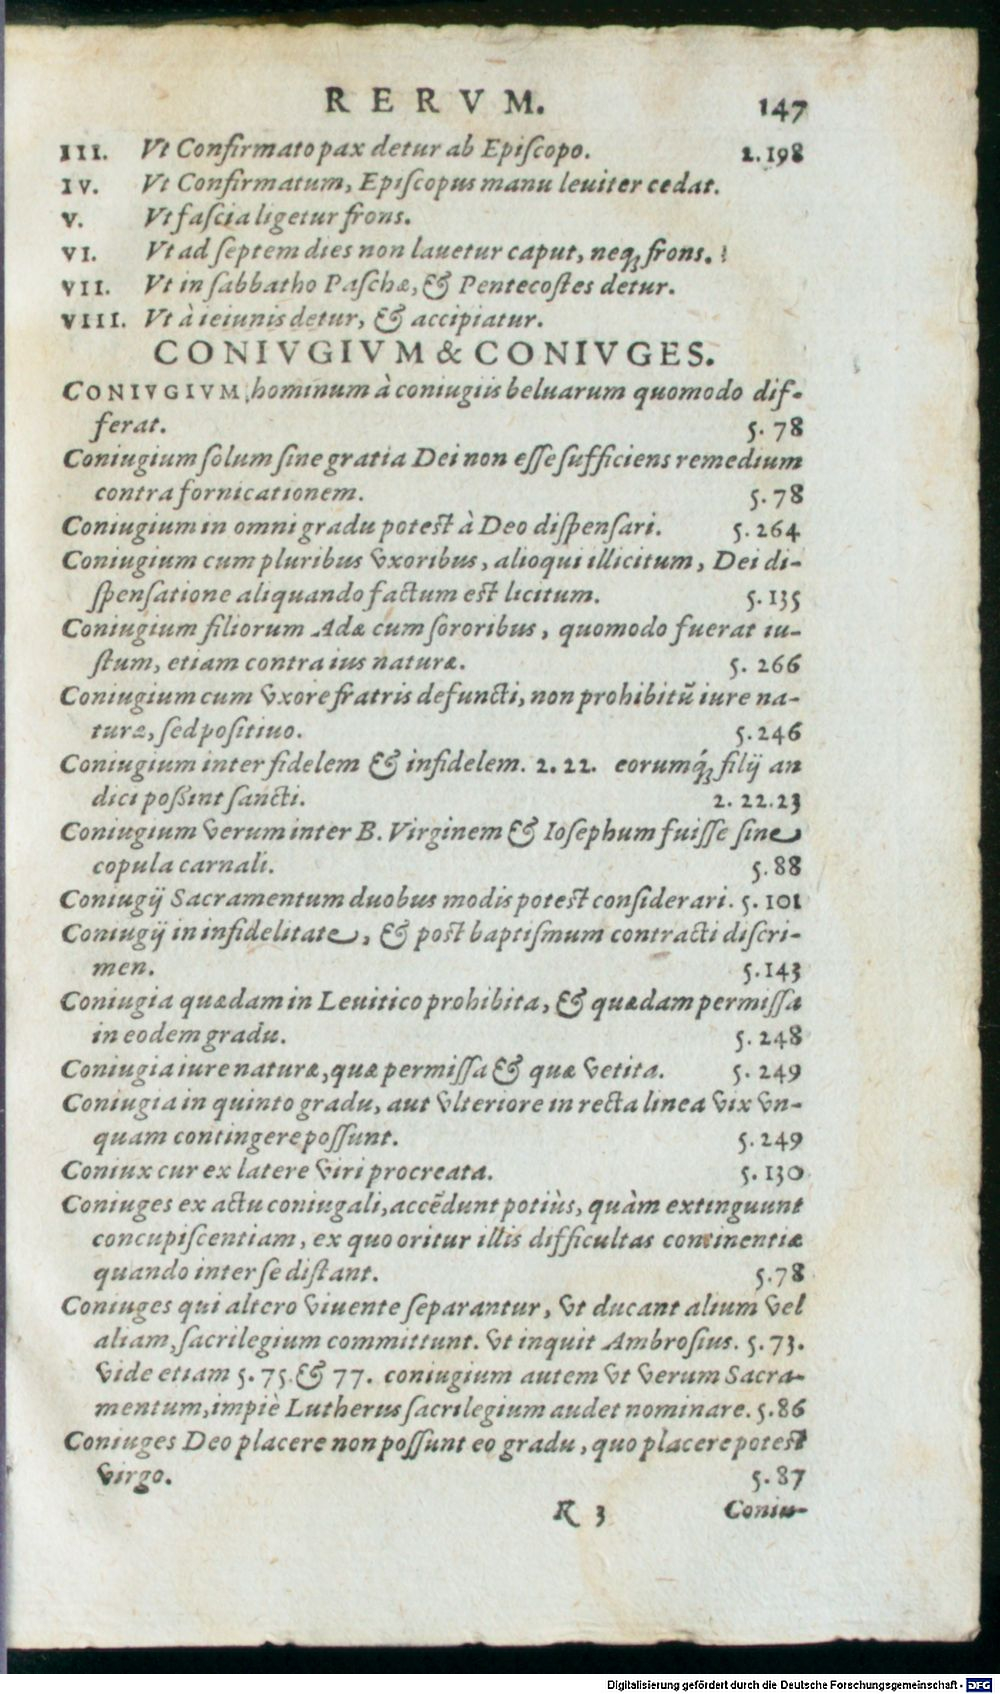 RERVM. 147
III. Vt Confirmato pax detur ab Episcopo. 2.198
IV. Vt Confirmatum, Episcopus manu leuiter cedat.
V. Vt fascia ligetur frons.
VI. Vt ad septem dies non lauetur caput, neq; frons.
VII. Vt in sabbatho Paschæ, & Pentecostes detur.
VIII. Vt à ieiunis detur, & accipiatur.
CONIVGIVM & CONIVGES.
CONIVGIVM hominum à coniugiis beluarum quomodo dif-
ferat. 5. 78
Coniugium solum sine gratia Dei non esse sufficiens remedium
contra fornicationem. 5. 78
Coniugium in omni gradu potest à Deo dispensari. 5. 264
Coniugium cum pluribus vxoribus, alioqui illicitum, Dei di-
spensatione aliquando factum est licitum. 5. 135
Coniugium filiorum Adæ cum sororibus, quomodo fuerat iu-
stum, etiam contra ius naturæ. 5. 266
Coniugium cum vxore fratris defuncti, non prohibitū iure na-
turæ, sed positiuo. 5.246
Coniugium inter fidelem & infidelem. 2. 22. eorumq́; filij an
dici poßint sancti. 2. 22.23
Coniugium verum inter B. Virginem & Iosephum fuisse sine
copula carnali. 5. 88
Coniugij Sacramentum duobus modis potest considerari. 5. 101
Coniugij in infidelitate, & post baptismum contracti discri-
men. 5.143
Coniugia quædam in Leuitico prohibita, & quædam permissa
in eodem gradu. 5. 248
Coniugia iure naturæ, quæ permissa & quæ vetita. 5. 249
Coniugia in quinto gradu, aut vlteriore in recta linea vix vn-
quam contingere possunt. 5.249
Coniux cur ex latere viri procreata. 5. 130
Coniuges ex actu coniugali, accēdunt potiùs, quàm extinguunt
concupiscentiam, ex quo oritur illis difficultas continentiæ
quando inter se distant. 5.78
Coniuges qui altero viuente separantur, vt ducant alium vel
aliam, sacrilegium committunt. vt inquit Ambrosius. 5. 73.
vide etiam 5. 75. & 77. coniugium autem vt verum Sacra-
mentum, impiè Lutherus sacrilegium audet nominare. 5. 86
Coniuges Deo placere non possunt eo gradu, quo placere potest
virgo. 5. 87
R 3 Coniu-
Digitalisierung gefördert durch die Deutsche Forschungsgemeinschaft - DFG